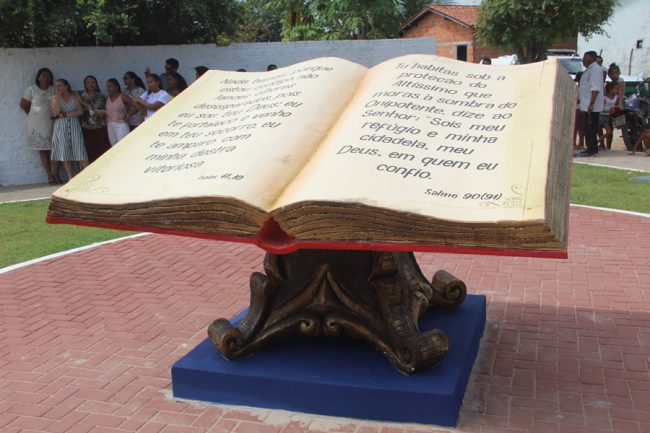 Nada temas, porque
estou contigo, não
lances olhares
desesperados, pois eu
sou teu Deus; eu
te fortaleço e venho
em teu socorro, eu
te amparo com
minha destra
vitoriosa
Isaías 41,10
Tu habitas sob a
proteção do
Altíssimo que
moras à sombra do
Onipotente, dize ao
Senhor: "Sois meu
refúgio e minha
cidadela, meu
Deus, em quem eu
confio.
Salmo 90(91)